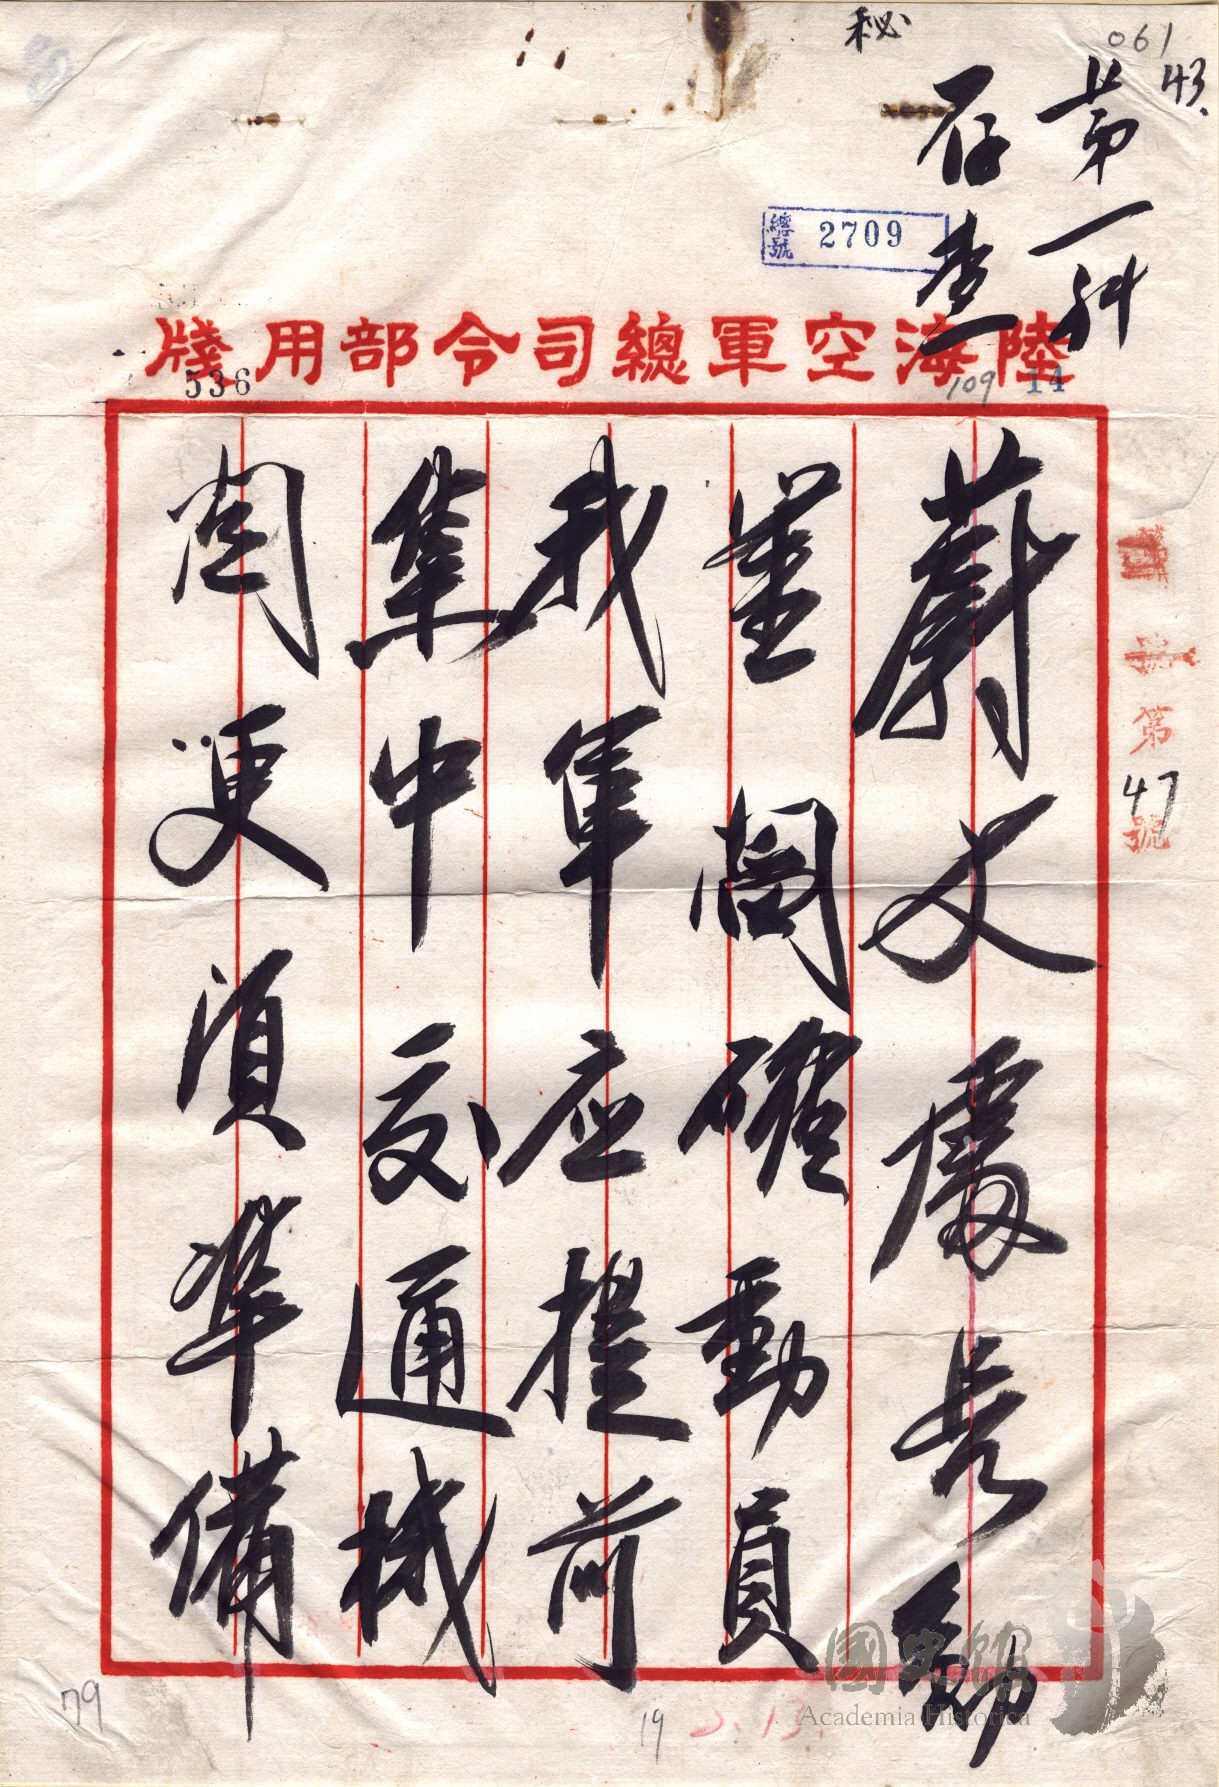 061
43.
秘
第一科
存查
總號 2709
陸海空軍總司令部用牋
536
109
14
第47號
蔚文處長勛
鑒 閻確動員
我軍应提前
集中交通機
関更須準備
79
19
國史館
Academia Historica